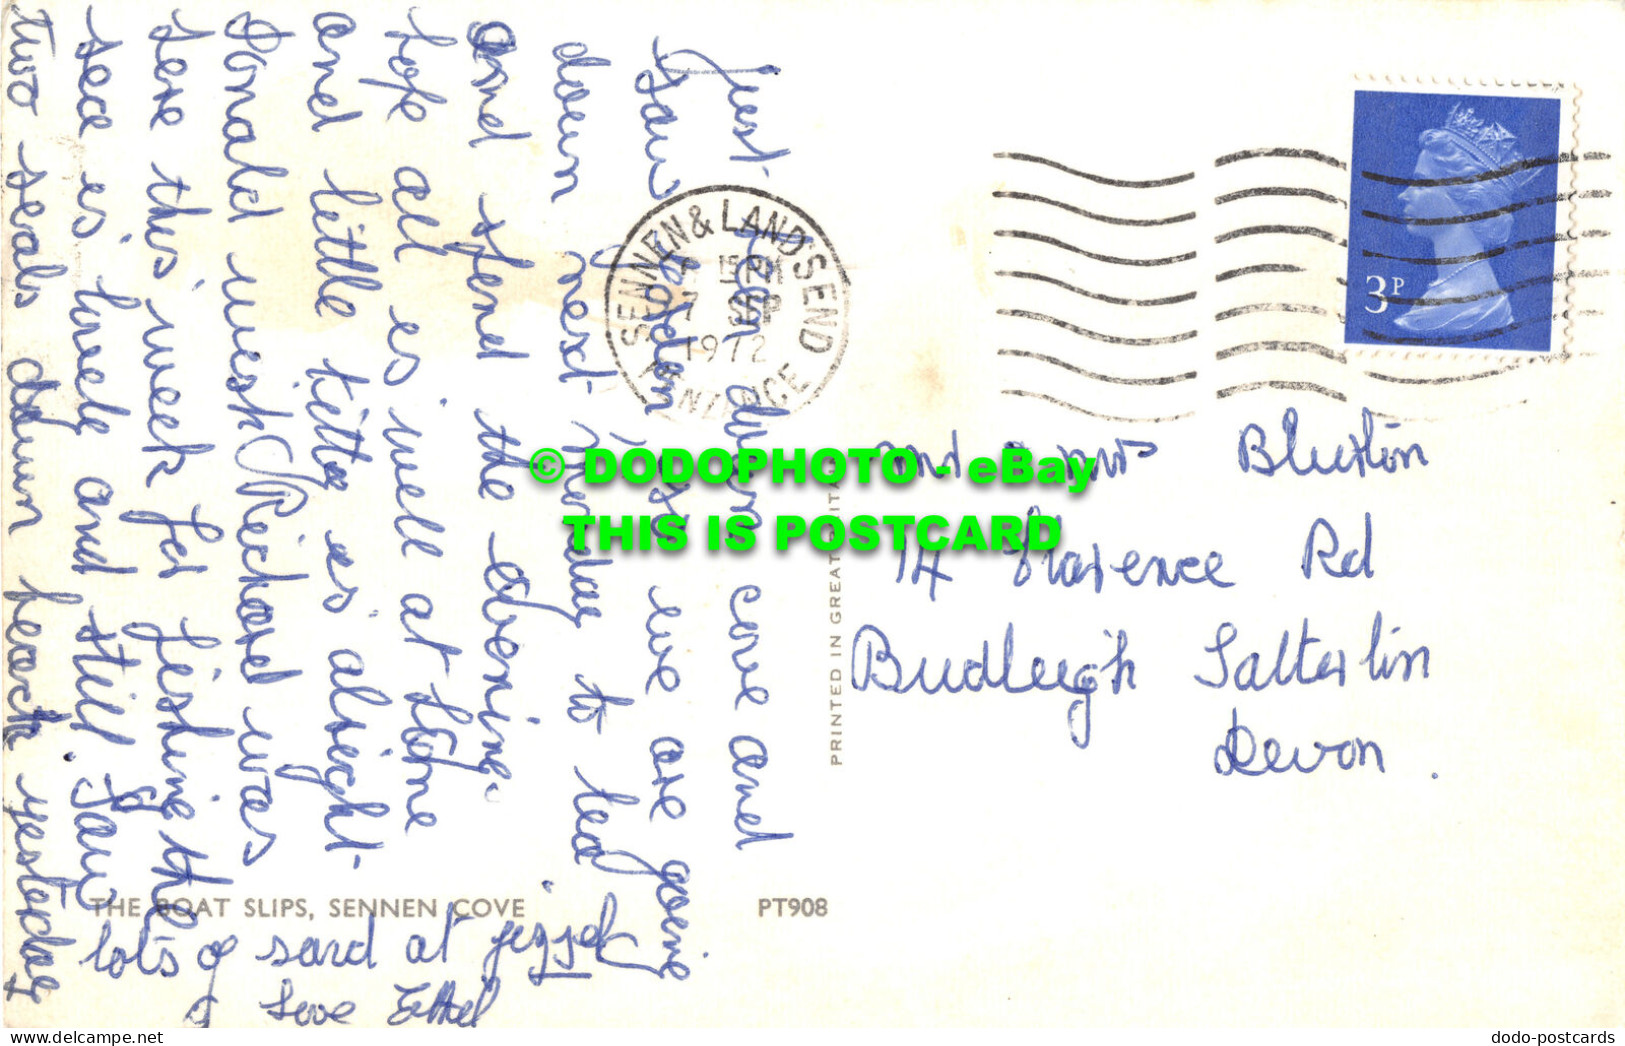 Just been down cove and
saw Loden is we are goeine
down next monday to tea
and spend the evening.
hope all es well at home
and little kitty es alreight
Donald wish Reichard was
here this week for fishing the
sea es lovely and still. saw
two seals down beach yesterday
lots of sand at
love Ethel
SENNEN & LANDS END
15 PM
7 SEP
1972
PENZANCE
3P
and mrs Bluxton
14 Florence Rd
Budleigh Salterlin
Devon.
PRINTED IN GREAT BRITAIN
THE BOAT SLIPS, SENNEN COVE
PT908
© DODOPHOTO - eBay
THIS IS POSTCARD
dodo-postcards